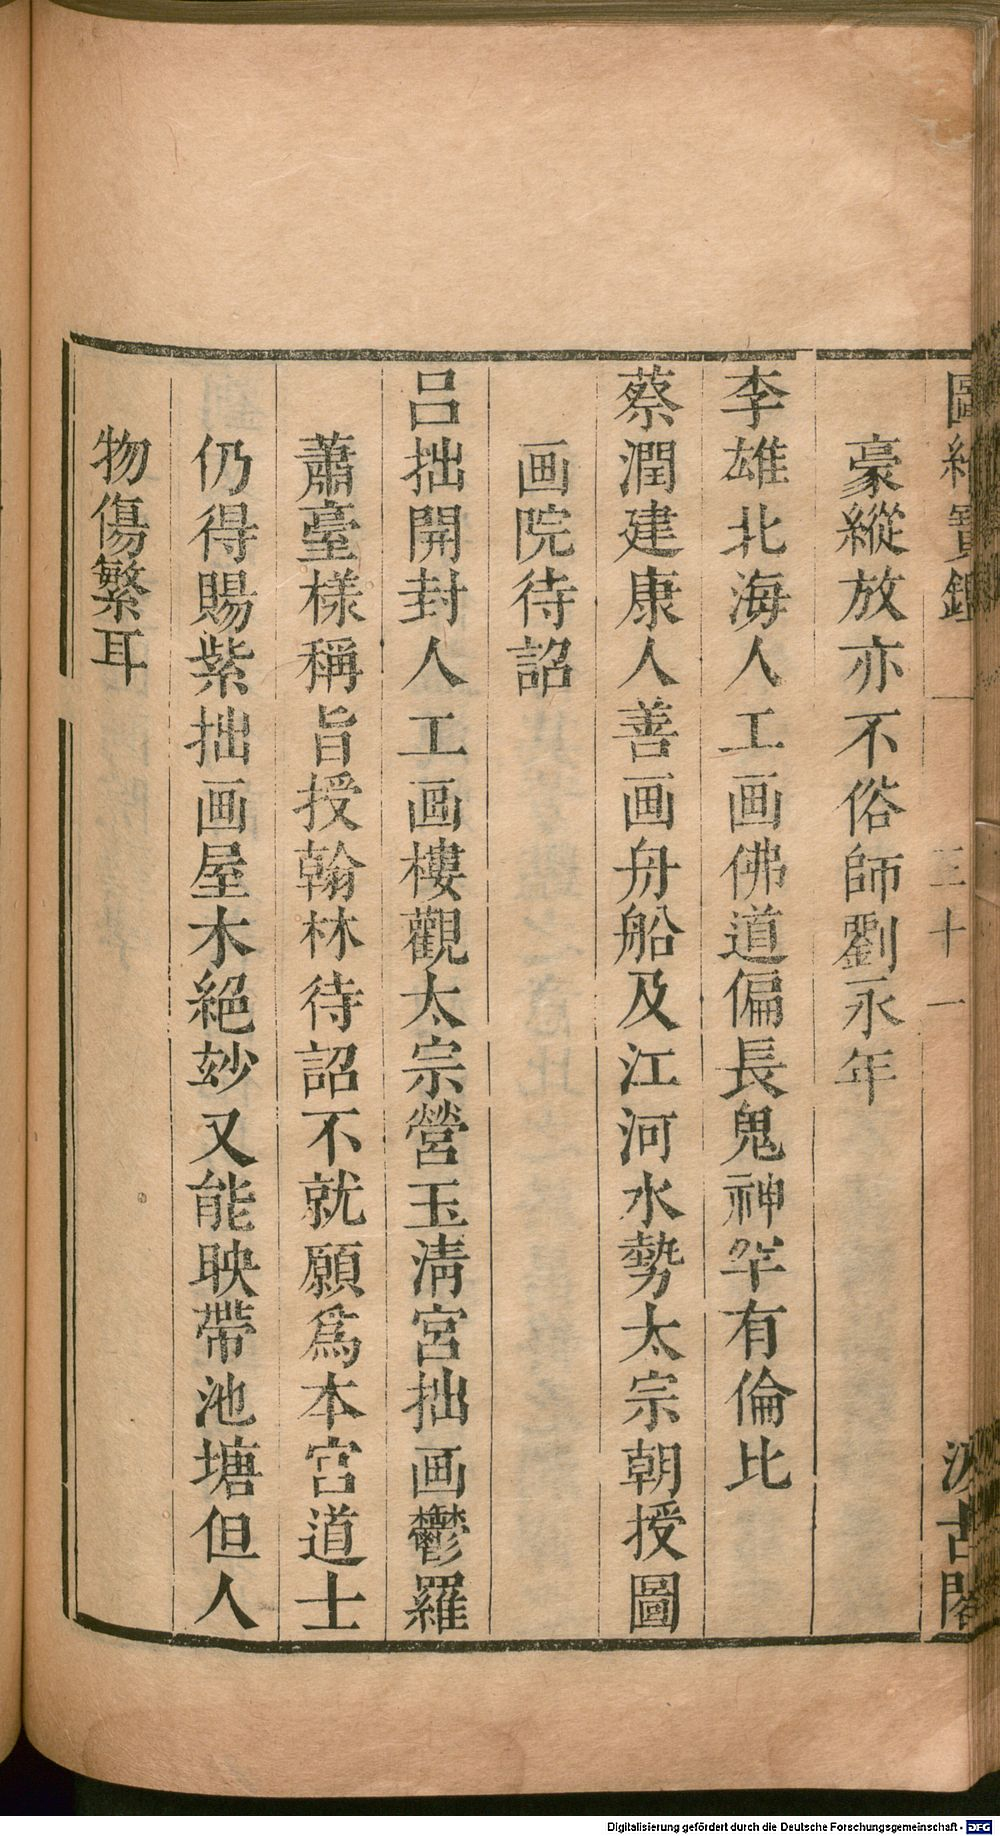 圖繪寶鑑 三十一 汲古閣
豪縱放亦不俗師劉永年
李雄北海人工画佛道偏長鬼神罕有倫比
蔡潤建康人善画舟船及江河水勢太宗朝授圖
画院待詔
呂拙開封人工画樓觀太宗營玉淸宮拙画鬱羅
蕭臺樣稱旨授翰林待詔不就願爲本宮道士
仍得賜紫拙画屋木絕妙又能映帶池塘但人
物傷繁耳
Digitalisierung gefördert durch die Deutsche Forschungsgemeinschaft - DFG